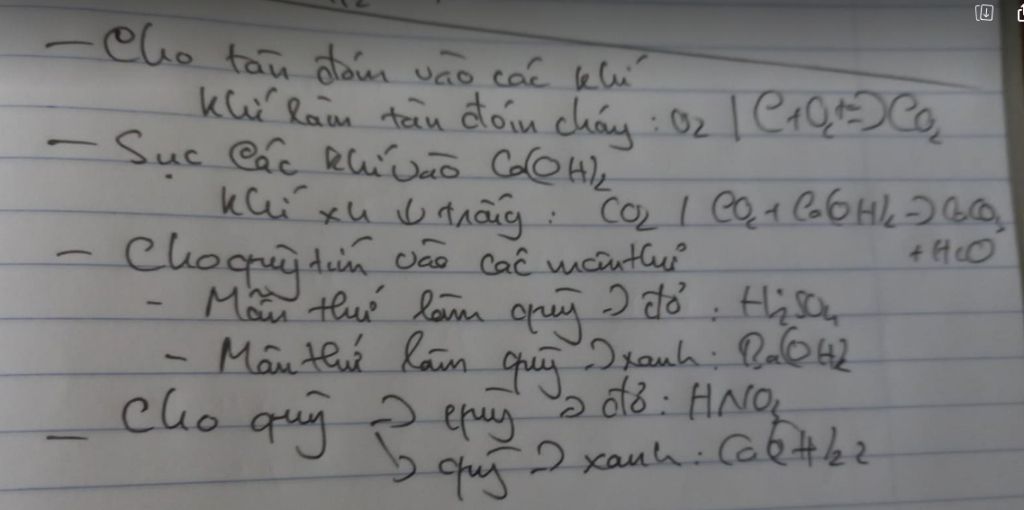 - Cho tàn đóm vào các khí
khí làm tàn đóm cháy : O2 | C+O2 => CO2
- Sục các khí vào Ca(OH)2
khí xh ↓ trắng : CO2 | CO2 + Ca(OH)2 => CaCO3
+ H2O
- Cho quỳ tím vào các mẫu thử
- Mẫu thử làm quỳ -> đỏ : H2SO4
- Mẫu thử làm quỳ -> xanh : Ba(OH)2
- Cho quỳ -> quỳ -> đỏ : HNO3
-> quỳ -> xanh : Ca(OH)2